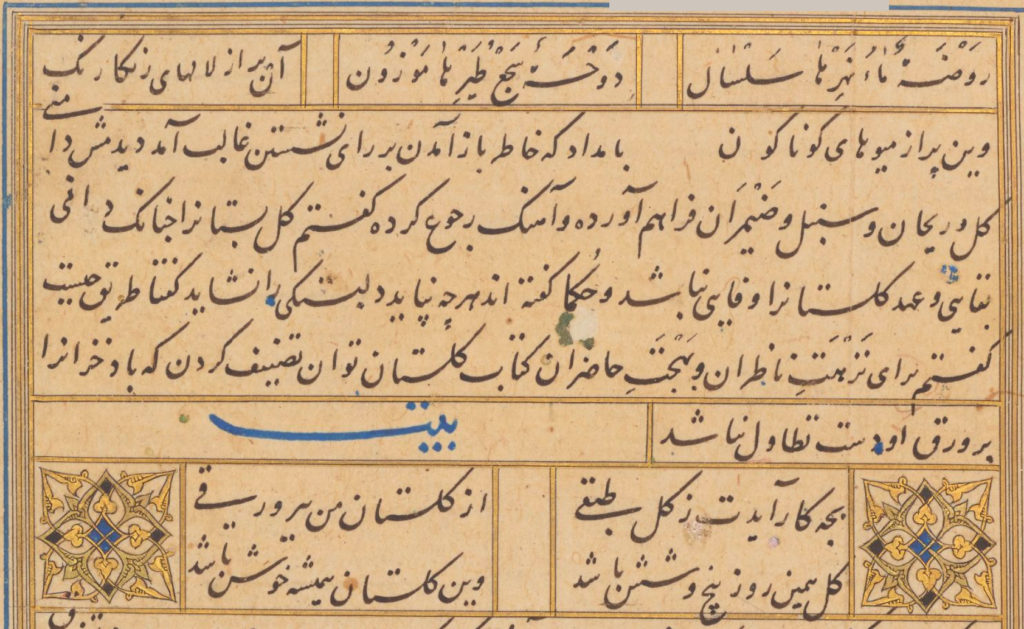 روْضَةٌ ماءُ نَهْرِها سَلْسٰال دَوْحَةٌ سَجْعُ طَیْرِها مَوْزُون آن پر از لالهای رنکارنک
وین پر از میوهای کوناکون بامداد که خاطر باز آمدن بر رای نشستن غالب آمد دیدمش دامنی
کل و ریحان و سنبل و ضَیْمُران فراهم آورده و آهنک رجوع کرده کفتم کل بستانرا چنانک دانی
بقایی و عهد کلستانرا وفایی نباشد و حُکما کفته اند هرچه نپاید دلبستکی را نشاید کفتا طریق چیست
کفتم برای نُزْهَتِ ناظران و بَهْجَتِ حاضران کتاب کلستان توان تصنیف کردن که باد خزانرا
بر ورق او دست تطاول نباشد بیت
بچه کار آیدت ز کل طبقی از کلستان من ببر ورقی
کل همین روز پنج و شش باشد وین کلستان همیشه خوش باشد